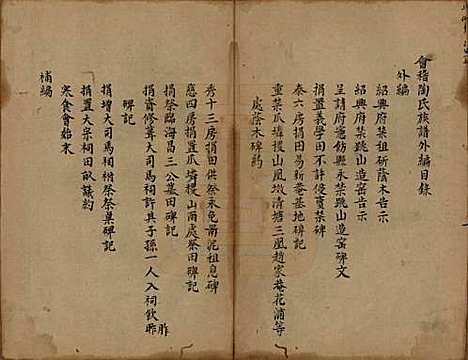 會稽陶氏族譜外編目錄
外編
紹興府禁祖斫蔭木告示
紹興府禁跳山造窰告示
呈請府憲飭縣永禁跳山造窰碑文
捐置義學田不許侵賣禁碑
泰六房捐田易新菴基地碑記
重禁瓜墇搜山風墩清塘三凰趙家菴花浦等
處蔭木碑約
秀十三房捐田供祭永免兩泥祖息碑
應四房捐置瓜墇搜山兩處祭田碑記
捐祭臨海昌三公墓田碑記
捐齋修葺大司馬祠許其子孫一人入祠飲胙
碑記
捐增大司馬祠祔祭祭藁碑記
捐置大宗祠田畝議約
寒食會始末
補編